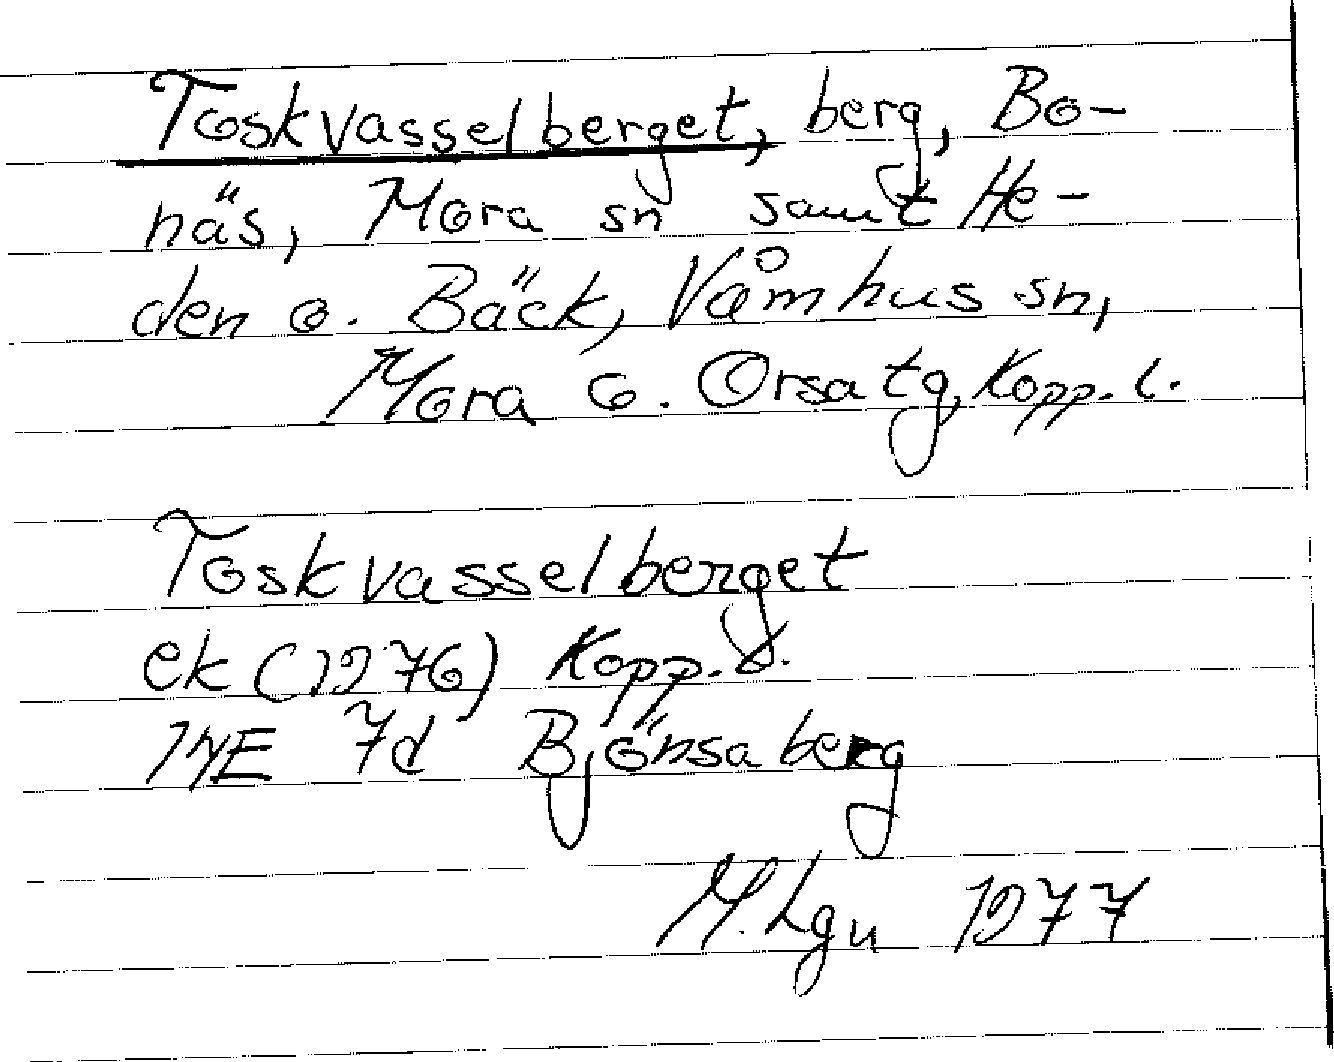 Toskvasselberget, berg, Bo-
näs, Mora sn samt He-
den o. Bäck, Våmhus sn,
Mora o. Orsa tg, Kopp. l.
Toskvasselberget
ek (1976) Kopp. l.
14E 7d Bjönsaberg
M. Lgn 1977